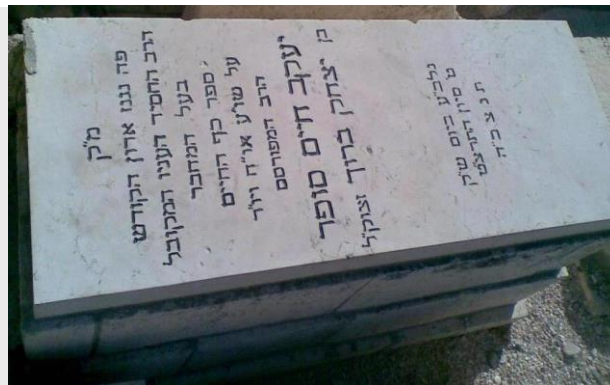 מ"ק
פה נגנז ארון הקודש
הרב החסיד העניו המקובל
בעל המחבר
ספר כף החיים
על שו"ע או"ח ויו"ד
הרב המפורסם
יעקב חיים סופר
בן יצחק ברוך זצוק"ל
נלב"ע ביום ש"ק
ט סיון התרצ"ט
ת נ צ ב"ה